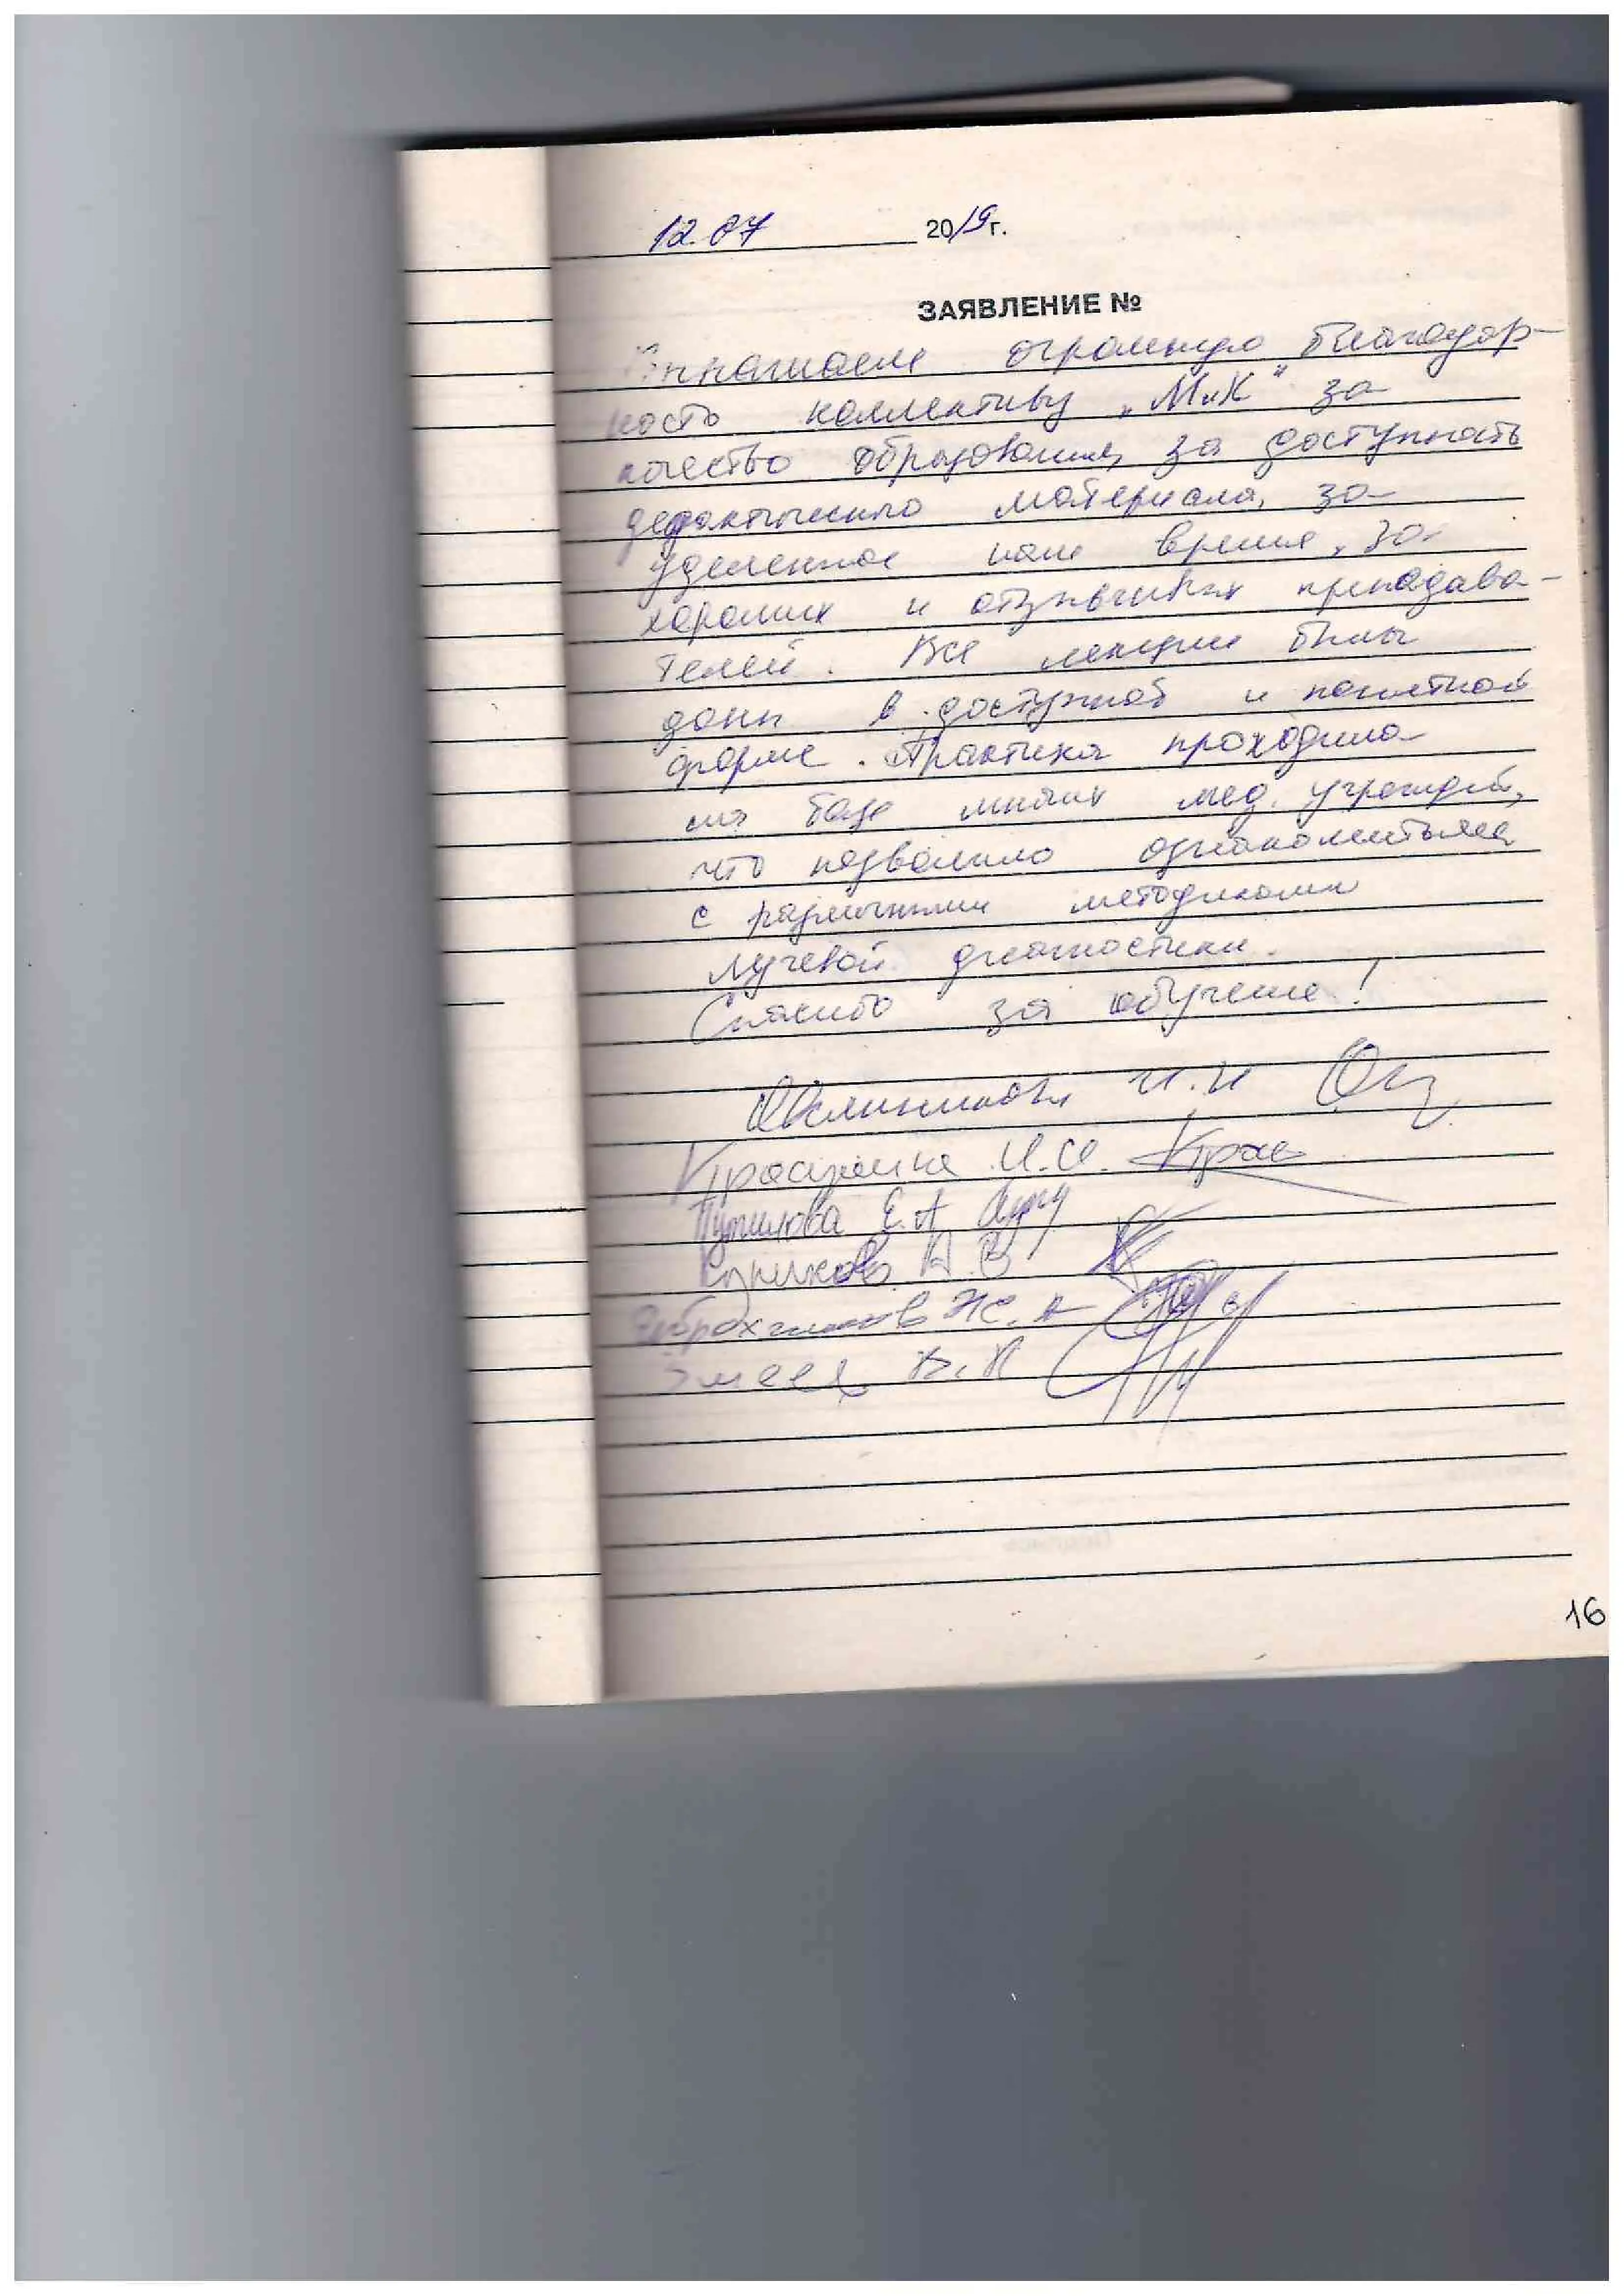 12.07 2019г.
ЗАЯВЛЕНИЕ №
Выражаем огромную благодар-
ность коллективу „МиК" за
качество образования, за доступность
дидактического материала, за
уделенное нам время, за
хороших и отзывчивых преподава-
телей. Все лекции были
даны в доступной и понятной
форме. Практика проходила
на базе многих мед. учрежден,
что позволило ознакомиться
с различными методиками
лучевой диагностики.
Спасибо за обучение!
И.И
И.И.
Е.А
А.В
Ж.А
Змеев В.А
16